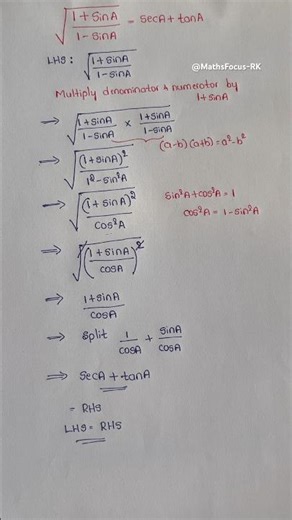 √(1+sinA / 1-sinA) = secA + tanA
@MathsFocus-RK
LHS : √(1+sinA / 1-sinA)
Multiply denominator & numerator by
1+sinA
⇒ √(1+sinA / 1-sinA × 1+sinA / 1-sinA)
(a-b)(a+b) = a²-b²
⇒ √((1+sinA)² / 1²-sin²A)
⇒ √((1+sinA)² / cos²A)
sin²A+cos²A = 1
cos²A = 1-sin²A
⇒ √((1+sinA / cosA)²)
⇒ 1+sinA / cosA
⇒ Split 1/cosA + sinA/cosA
⇒ secA + tanA
= RHS
LHS = RHS